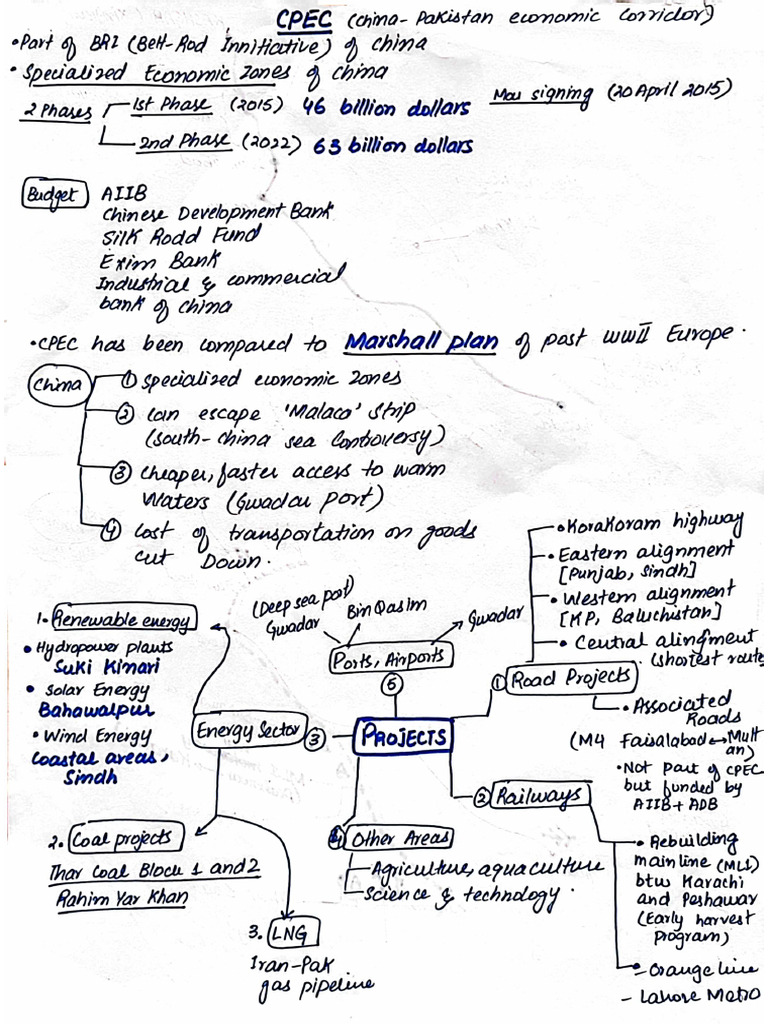 CPEC (China-Pakistan economic Corridor)
• Part of BRI (Belt-Rod Innitiative) of China
• Specialized Economic Zones of China
2 Phases
1st Phase (2015) 46 billion dollars
Mou signing (20 April 2015)
2nd Phase (2022) 63 billion dollars
Budget
AIIB
Chinese Development Bank
Silk Rodd Fund
Exim Bank
Industrial & commercial
bank of China
• CPEC has been compared to Marshall plan of post WWII Europe.
China
① Specialized economic zones
② Can escape 'Malaca' strip
(South-China sea Controversy)
③ Cheaper, faster access to warm
Waters (Gwadar Port)
④ Cost of transportation on goods
cut Down.
• KoraKoram highway
• Eastern alignment
[Punjab, Sindh]
• Western alignment
[KP, Baluchistan]
• Central alingment
(shortest route
1. Renewable energy
• Hydropower plants
Suki Kinari
• Solar Energy
Bahawalpur
• Wind Energy
Coastal areas,
Sindh
(Deep sea port)
Gwadar
Bin Qasim
Gwadar
Ports, Airports
⑤
① Road Projects
• Associated
Roads
(M4 Faisalabad ↔ Mult
an)
• Not Part of CPEC
but funded by
AIIB + ADB
Energy Sector ③
PROJECTS
② Railways
• Rebuilding
mainline (ML1)
btw Karachi
and Peshawar
(Early harvest
program)
• - Orange line
- Lahore Metro
④ Other Areas
Agriculture, aquaculture
Science & technology.
2. Coal projects
Thar Coal Block 1 and 2
Rahim Yar Khan
3. LNG
Iran-Pak
gas pipeline